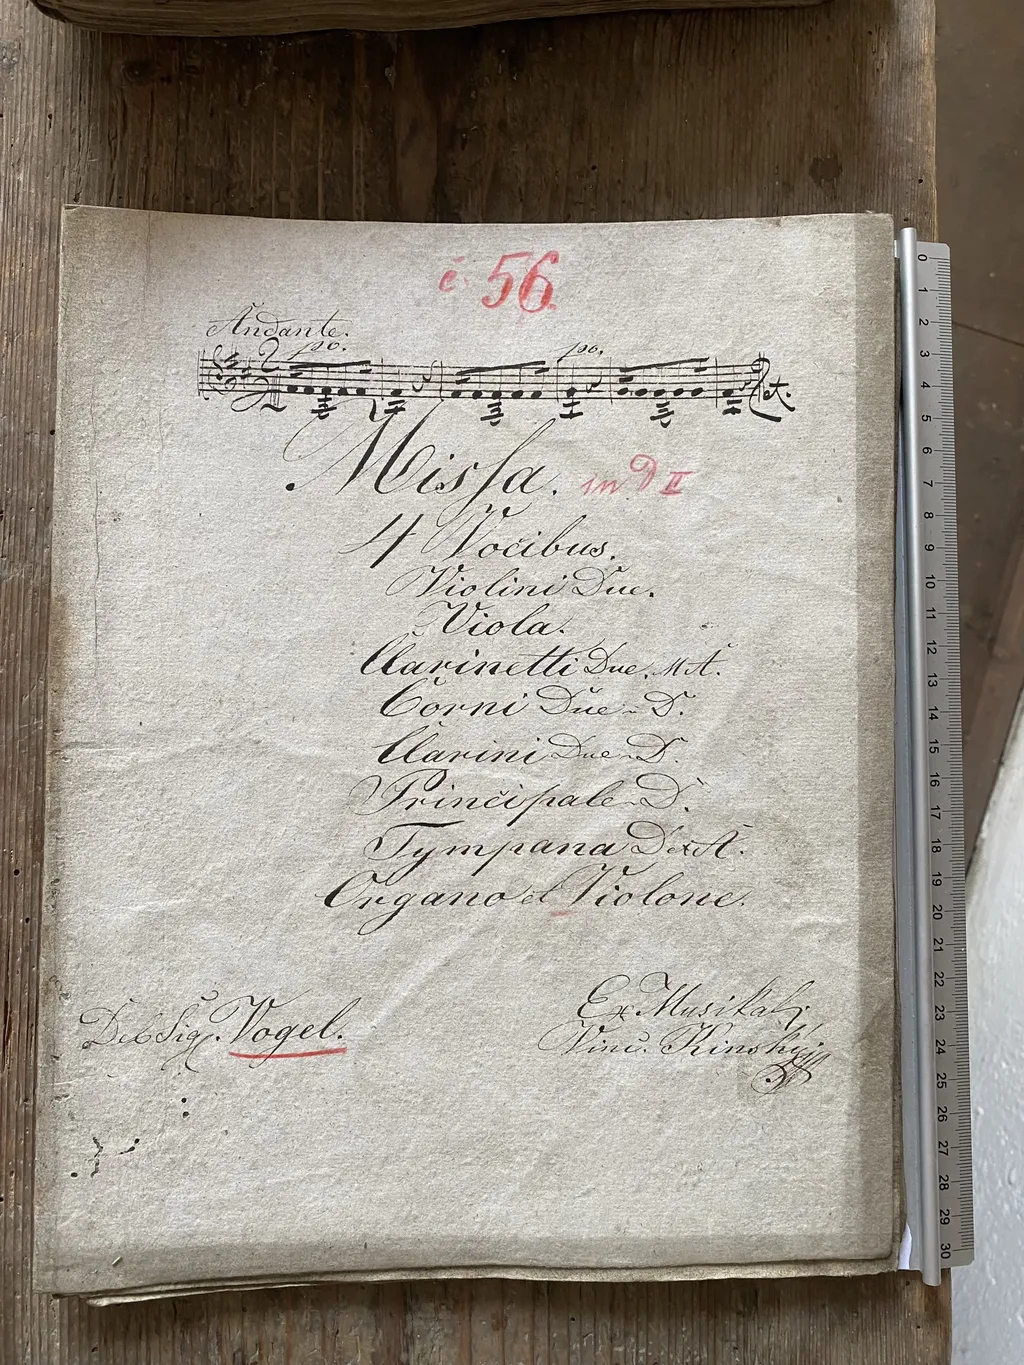 č. 56.
Andante.
po. po.
Missa. in D II
4 Vocibus.
Violini Due.
Viola.
Clarinetti Due. in A.
Corni Due in D.
Clarini Due in D.
Principale in D.
Tympana D et A.
Organo et Violone.
Del Sig. Vogel.
Ex Musikal;
Vinc. Kinský
0 1 2 3 4 5 6 7 8 9 10 11 12 13 14 15 16 17 18 19 20 21 22 23 24 25 26 27 28 29 30